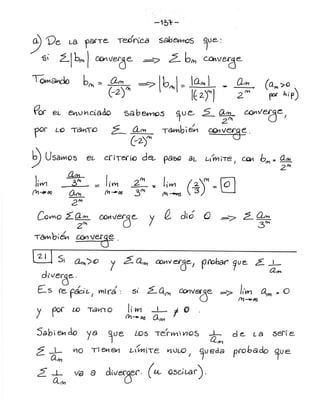 -137-
a) De la parte teórica sabemos que:
Si Σ|bₙ| converge ⟹ Σ bₙ converge
Tomando bₙ = aₙ/(-2)ⁿ ⟹ |bₙ| = |aₙ|/|(-2)ⁿ| = aₙ/2ⁿ (aₙ>0 por hip)
Por el enunciado sabemos que Σ aₙ/2ⁿ converge,
por lo tanto Σ aₙ/(-2)ⁿ también converge.
b) Usamos el criterio del paso al límite, con bₙ = aₙ/2ⁿ
lim n→∞ (aₙ/3ⁿ)/(aₙ/2ⁿ) = lim n→∞ 2ⁿ/3ⁿ = lim n→∞ (2/3)ⁿ = 0
Como Σ aₙ/2ⁿ converge y l dió 0 ⟹ Σ aₙ/3ⁿ
también converge.
21 Si aₙ>0 y Σ aₙ converge, probar que Σ 1/aₙ
diverge.
Es re fácil, mirá: si Σ aₙ converge ⟹ lim n→∞ aₙ = 0
y por lo tanto lim n→∞ 1/aₙ ≠ 0.
Sabiendo ya que los términos 1/aₙ de la serie
Σ 1/aₙ no tienen límite nulo, queda probado que
Σ 1/aₙ va a diverger. (u oscilar).